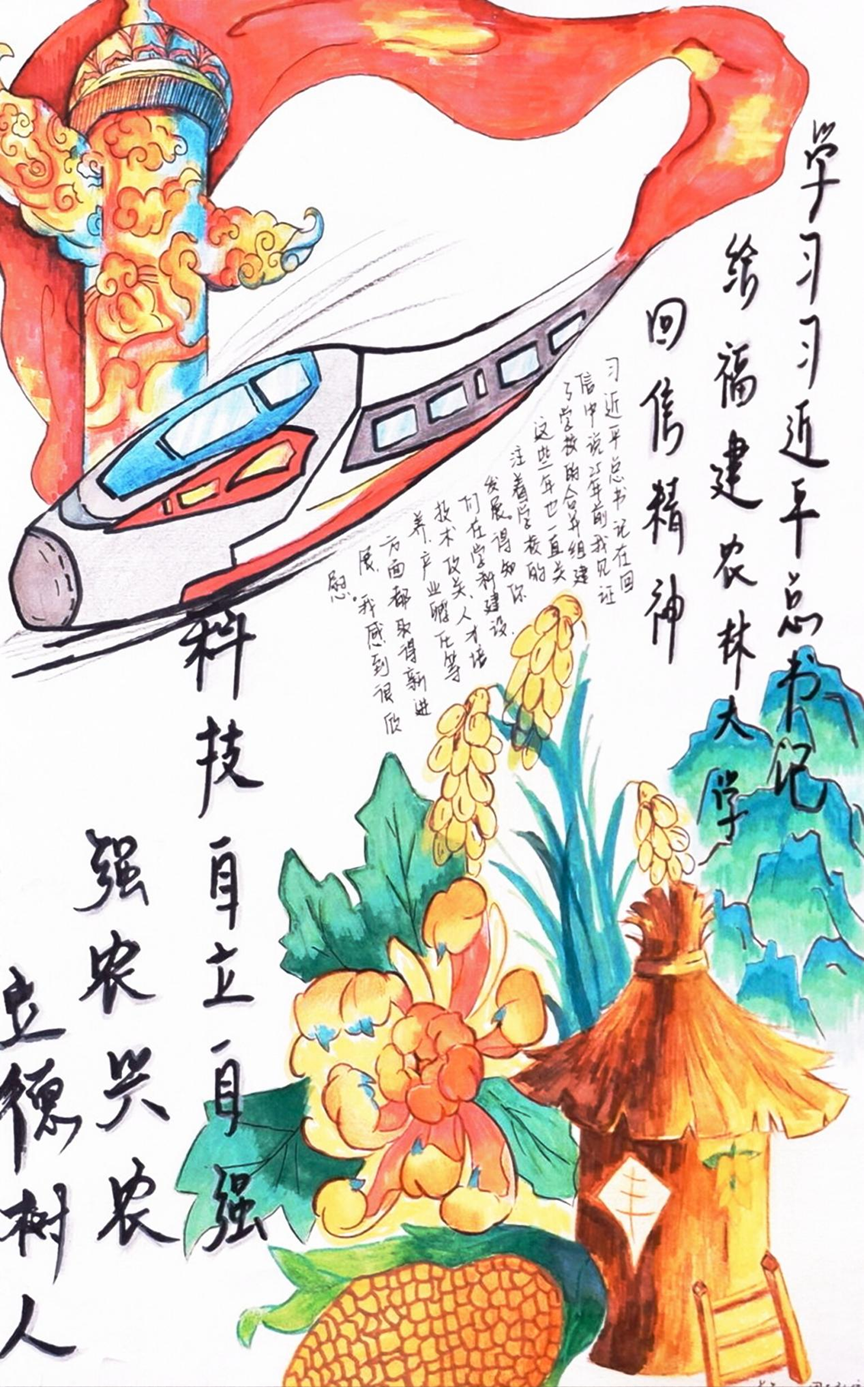 学习习近平总书记
给福建农林大学
回信精神
习近平总书记在回
信中说25年前我见证
了学校的合并组建
这些年也一直关
注着学校的
发展。得知你
们在学科建设、
技术攻关、人才培
养、产业孵化等
方面都取得新进
展,我感到很欣
慰。
科技自立自强
强农兴农
立德树人
丰